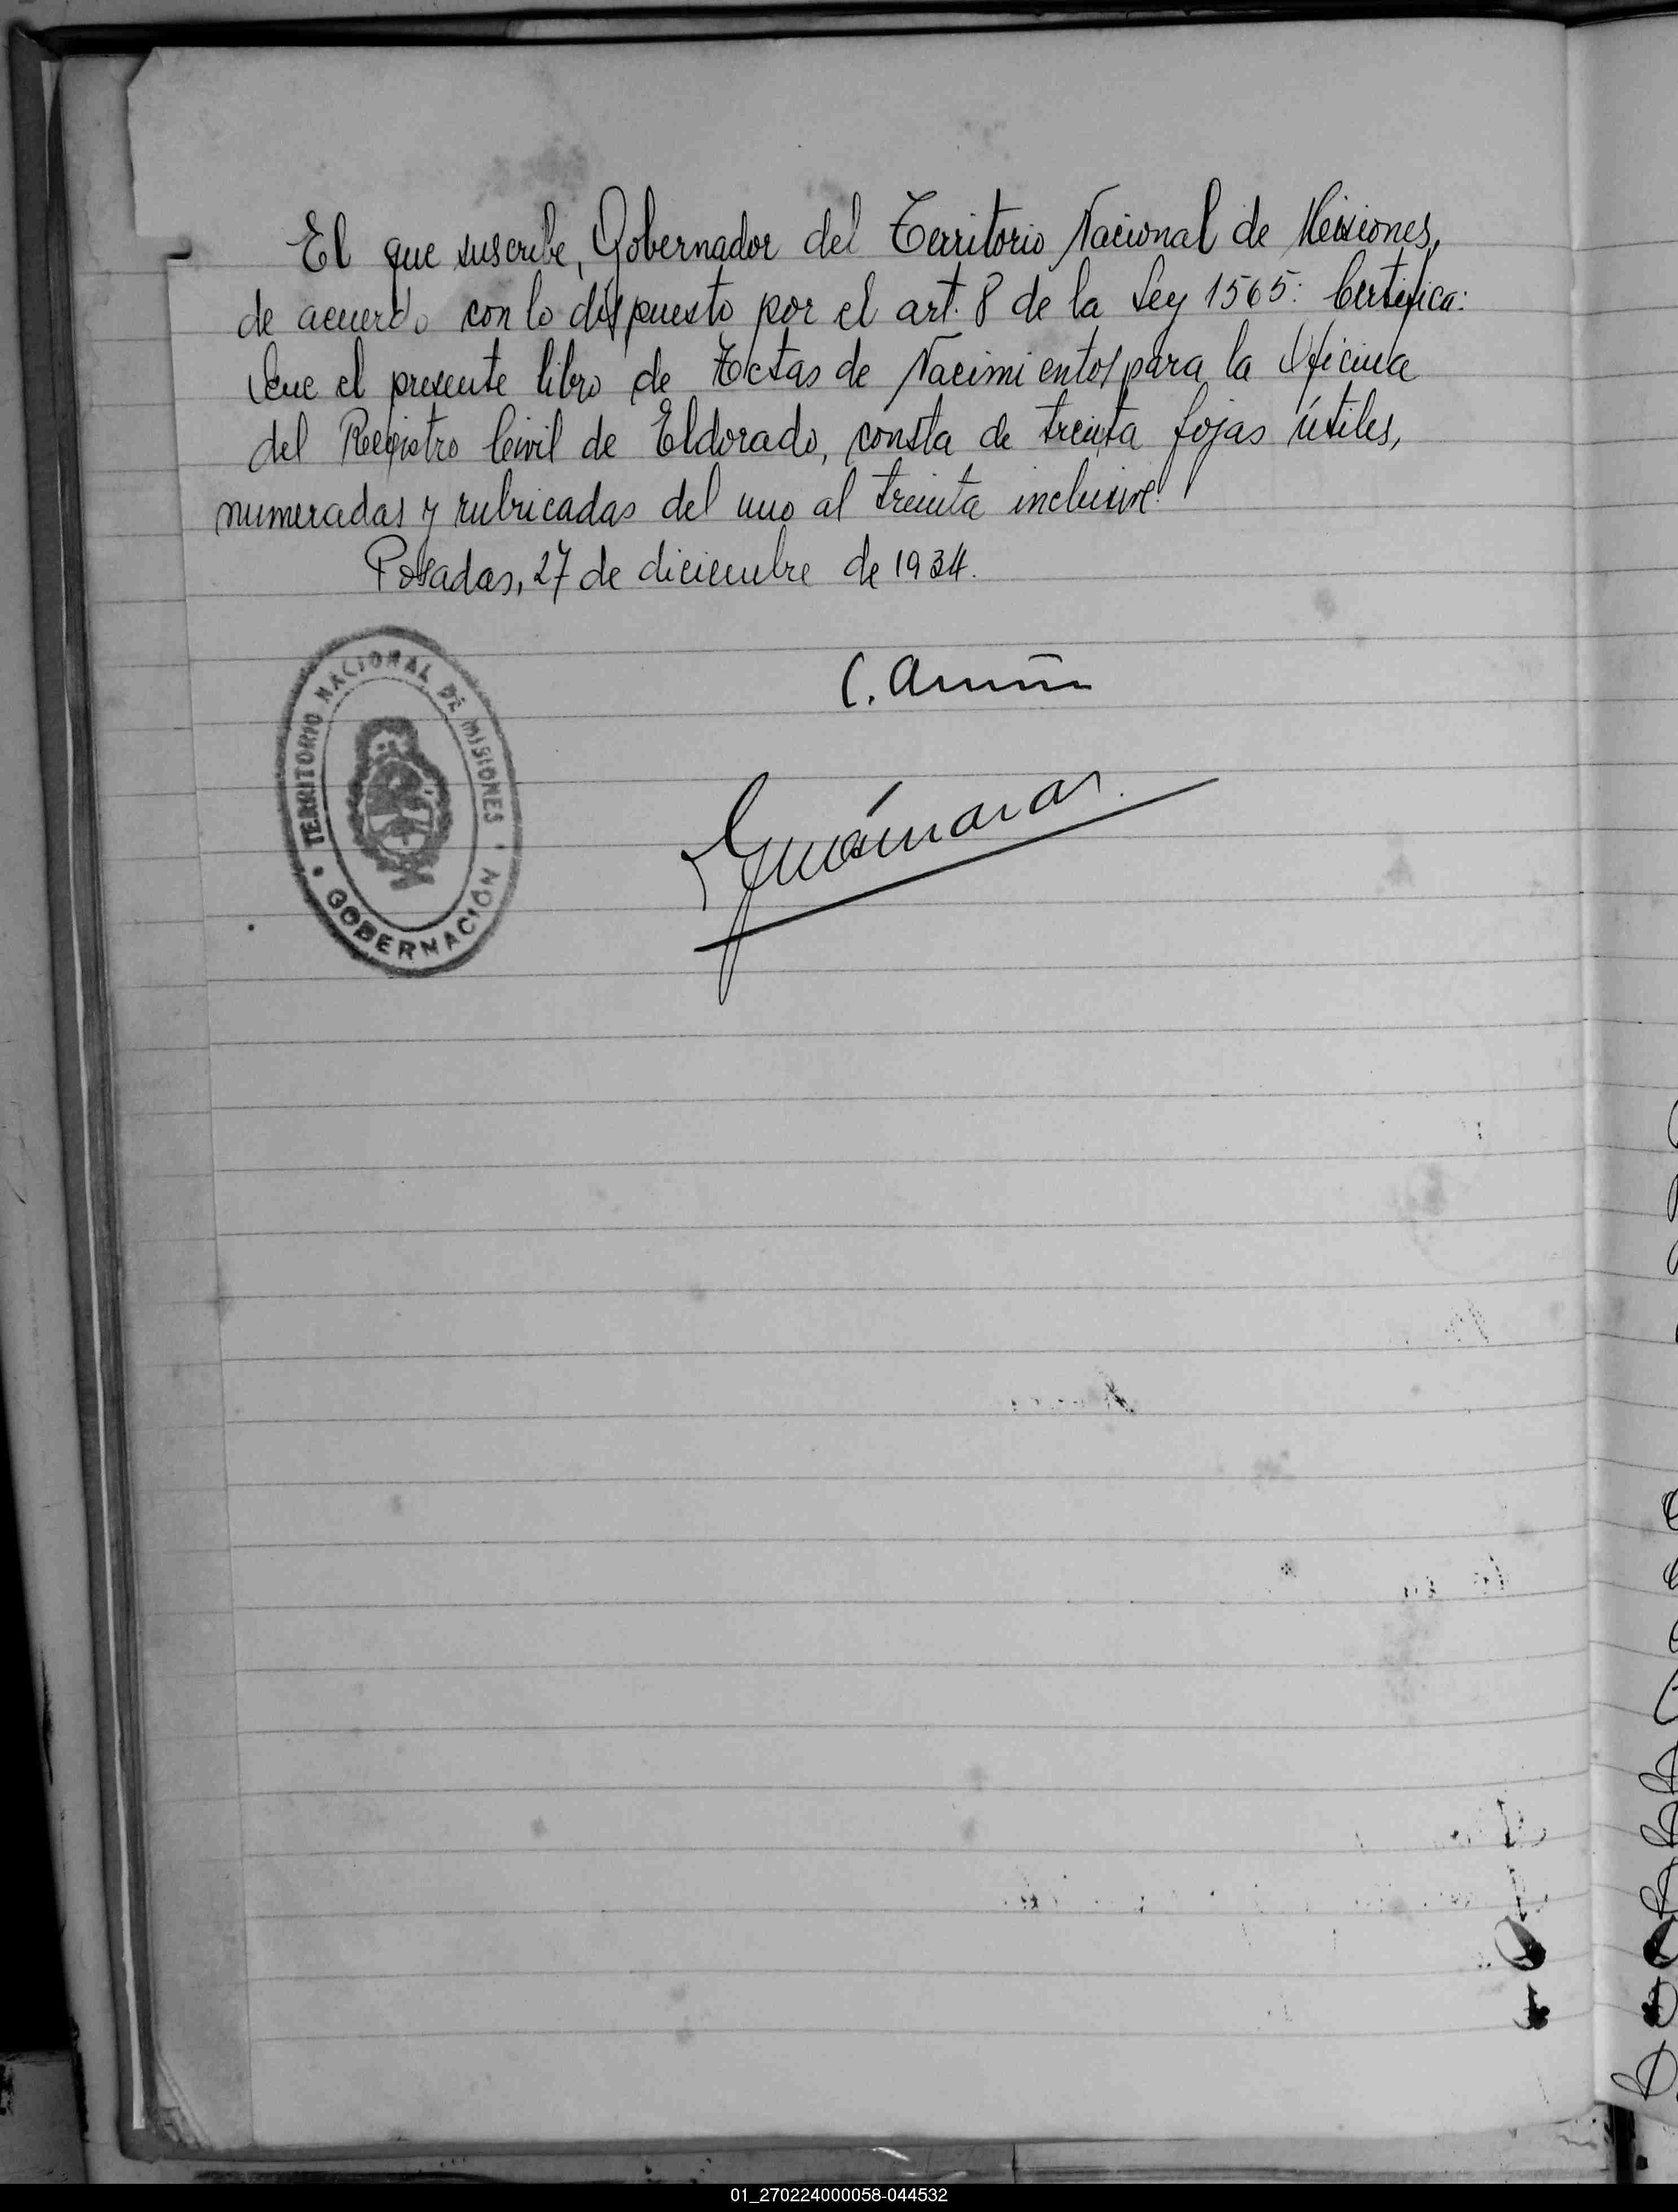 El que suscribe, Gobernador del Territorio Nacional de Misiones,
de acuerdo con lo dispuesto por el art. 8 de la Ley 1565: Certifica:
Que el presente libro de Actas de Nacimientos para la Oficina
del Registro Civil de Eldorado, consta de treinta fojas útiles,
numeradas y rubricadas del uno al treinta inclusive.
Posadas, 27 de diciembre de 1934.
TERRITORIO NACIONAL DE MISIONES
GOBERNACIÓN
01_270224000058-044532